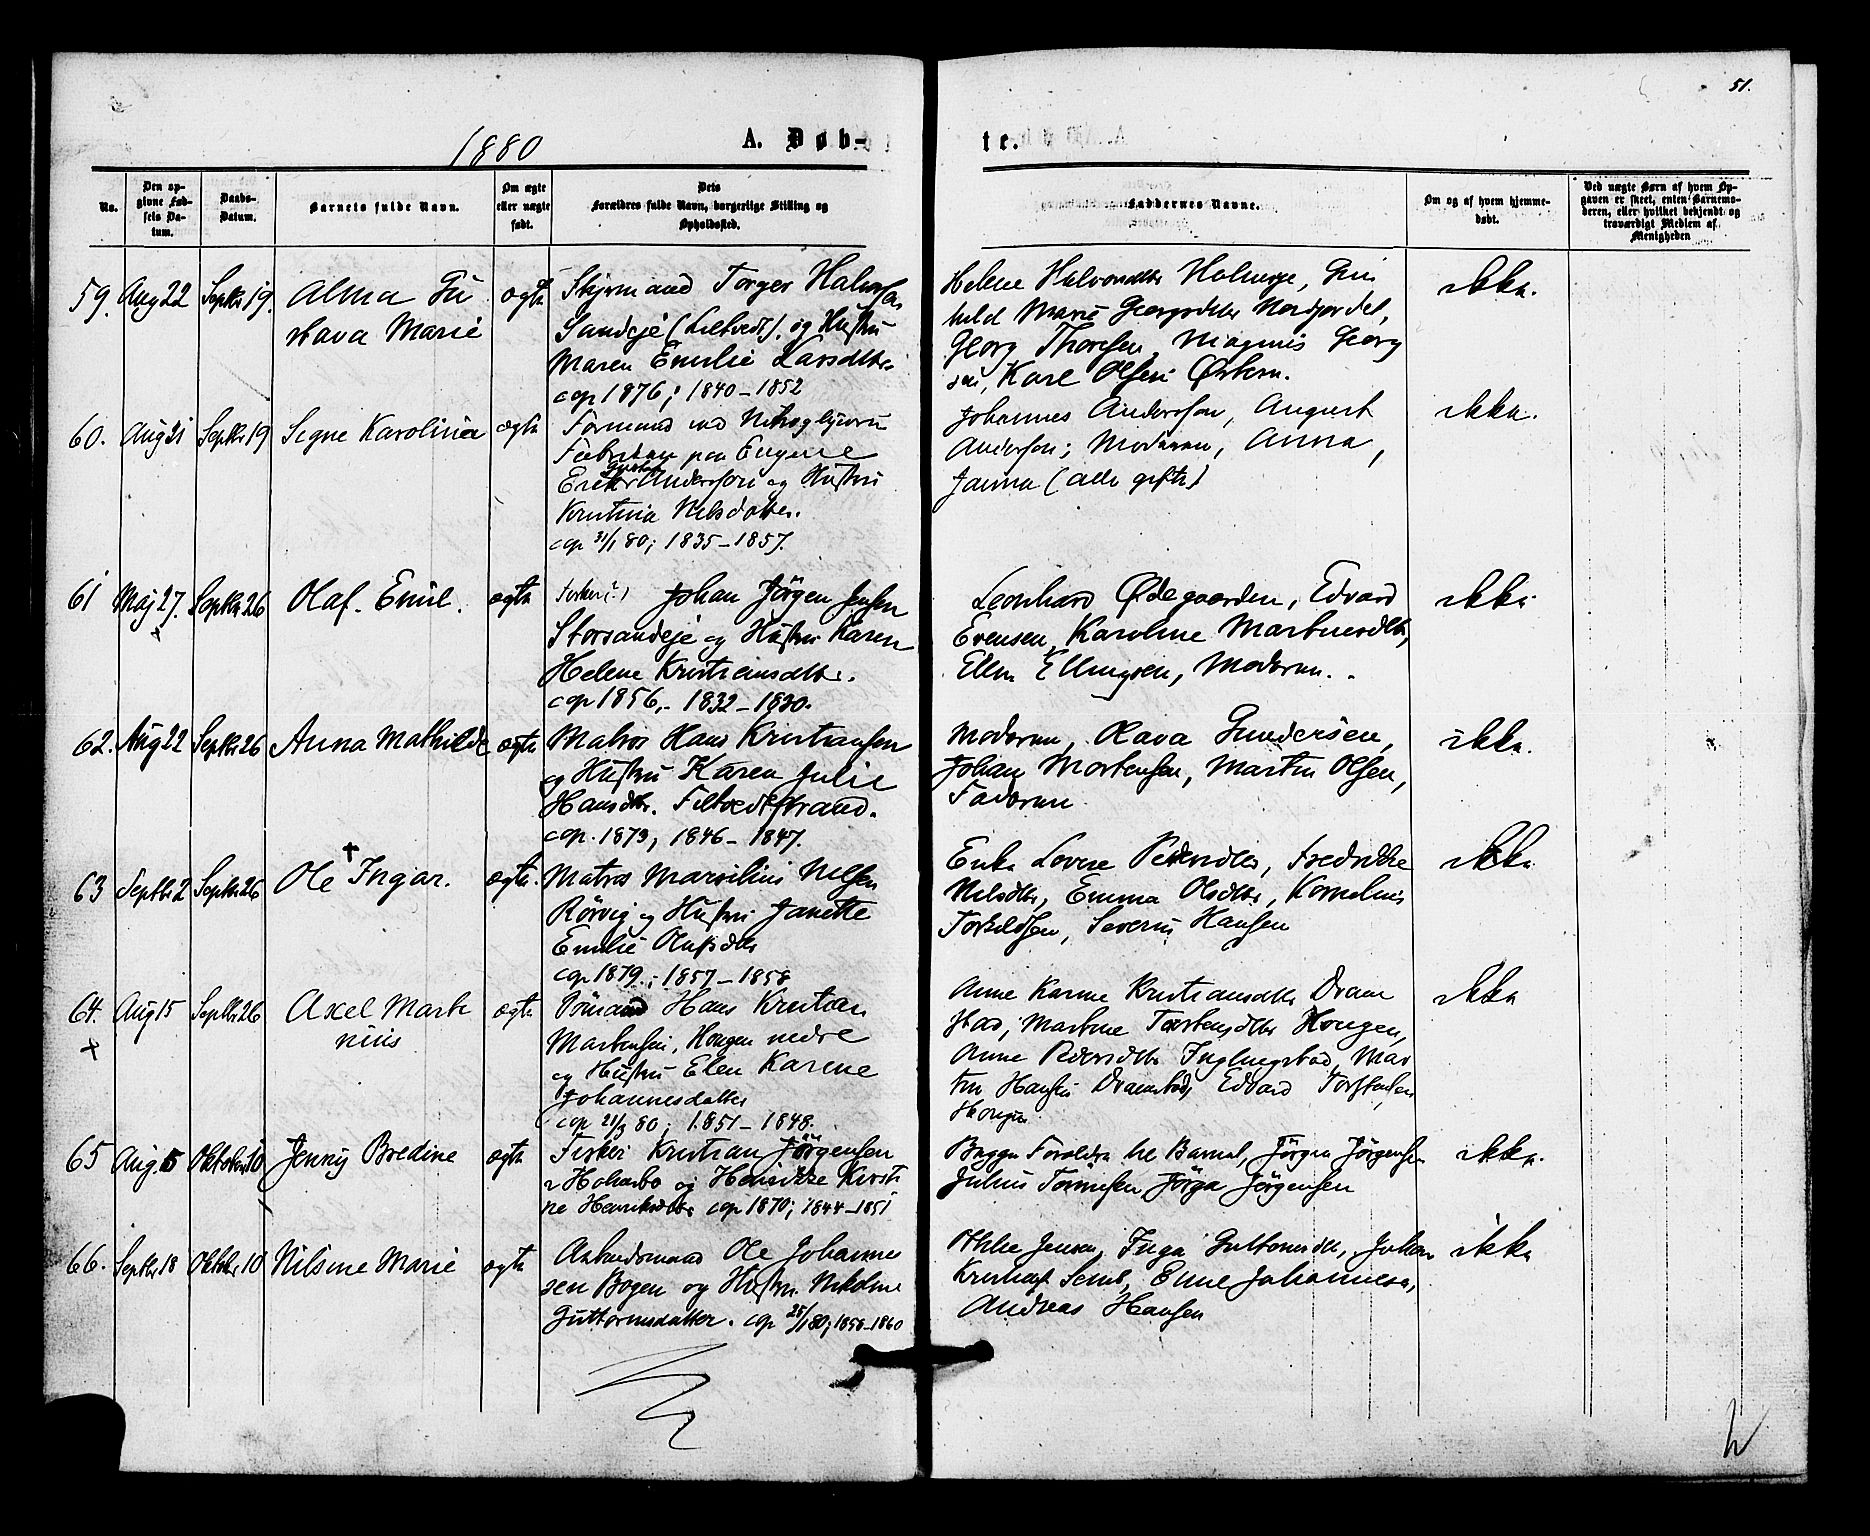 51.
1880 A. Døb-
te.
No.
Den op-
givne Fød-
sels Da-
tum.
Daabs-
Datum.
Barnets fulde Navn.
Om ægte
eller uægte
født.
Dets
Forældres fulde Navn, borgerlige Stilling og
Opholdssted.
Faddernes Navne.
Om og af hvem hjemme-
døbt.
Ved uægte Børn af hvem Op-
gaven er skeet, enten Barnemo-
deren, eller hvilket bekjendt og
troværdigt Medlem af
Menigheden
59. Aug 22 Septbr 19. Alma Gu
stava Marie
ægte
Styrmand Torger Halvorsen
Sandeje (Filtvedt), og Hustru
Maren Emilie Larsdtter
cop 1876; 1840-1852
Helene Halvorsdtter Holmegs, Gun
hild Marie Georgsdtter Nordfjordet,
Georg Thoresen, Magnus Georg
sen, Karl Olsen Østern.
ikke.
60. Aug 21 Septbr 19 Signe Karolina
ægte
Formand ved Nitroglycerin
Fabriken paa Engene
Erik Gustav Andersson og Hustru
Kristina Nilsdotter.
cop 31/1 80; 1835-1857.
Johannes Andersson, August
Andersson; Moderen, Anna,
Janna (alle gifte)
ikke.
61 Maj 27. Septbr 26 Olaf Emil.
ægte
Johan Jörgen Jensen
Storsandeje og Hustru Karen
Helene Kristiansdtter.
cop 1856,- 1832-1830.
Leonhard Ødegaarden, Edvard
Evensen, Karoline Martinsdtter,
Ellen Ellingsen, Moderen.
ikke
62. Aug 22 Septbr 26 Anna Mathilde
ægte
Matros Hans Kristiansen
og Hustru Karen Julie
Hansdtr. Filtvedtstrand.
cop. 1873, 1846-1847.
Moderen, Olava Gundersen,
Johan Mortensen, Martin Olsen,
Faderen
ikke.
63 Septbr 2 Septbr 26 Ole † Ingar.
ægte.
Matros Marsilius Nilsen
Rörvig og Hustru Janette
Emilie Olufsdtter
cop 1879; 1857-1858
Enke Lovise Pedersdtter, Fredrikke
Nilsdtter, Emma Olsdtter, Kornelius
Torkildsen, Severin Hansen
ikke
64. Aug 15 Septbr 26 Axel Marti
nius
ægte
Hans Kristian
Martinsen, Hougen nedre
og Hustru Elen Karine
Johannesdatter
cop 21/3 80; 1851-1848.
Anne Karine Kristiansdtter Dram
stad, Martine Torstensdtter Hougen,
Anne Pedersdtter Inglingstad, Mar
tin Hansen Dramstad, Edvard Torstensen
Hougen
ikke
65 Aug. 5 Oktober 10 Jenny Bredine
ægte
Fisker Kristian Jörgensen
Holmsbo og Henrikke Kirsti
ne Henriksdtter cop 1870; 1844-1851
Begge Forældre til Barnet, Jörgen Jörgensen
Julius Tönnesen, Jörga Jörgensen
ikke.
66. Septbr 18 Oktbr 10 Nilsine Marie
ægte
Arbeidsmand Ole Johannes
sen Bogen og Hustru Nikoline
Guttormsdatter. cop 25/1 80; 1858-1860
Othilie Jensen, Inga Guttormsdtr, Johan
Kristian, Emil Johannesen,
Andreas Hansen
ikke